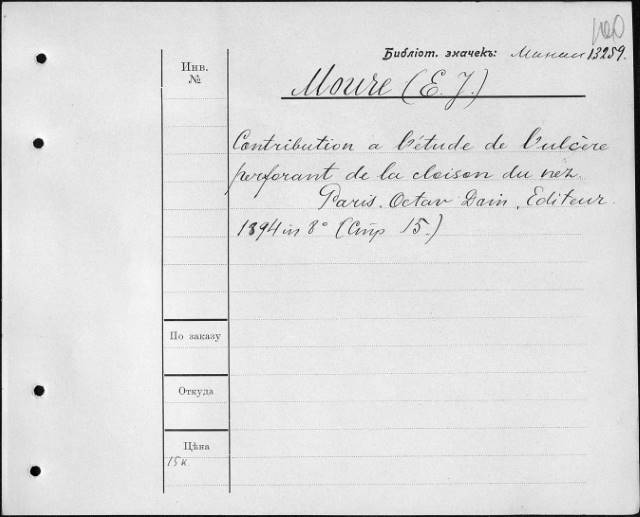 Библіот. значекъ: 13259.
Инв.
№
Moure (E. J.)
Contribution a l'étude de l'ulcère
perforant de la cloison du nez.
Paris. Octav Doin, Editeur
1894 in 8° (Стр 15.)
По заказу
Откуда
Цѣна
15 к